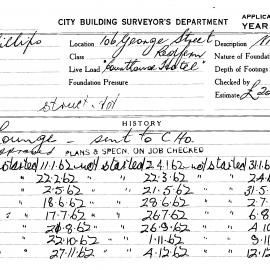 CITY BUILDING SURVEYOR'S DEPARTMENT
APPLICA
YEAR
Location 106 George Street Description
Class Redfern Nature of Foundation
Live Load "Courthouse Hotel" Depth of Footings
Foundation Pressure Checking
Estimate £20
Struct. Not
HISTORY
Lounge - sent to C.H.O.
PLANS & SPECN. ON JOB CHECKED
started 11.1.62 not started 24.1.62 not started 31.1.6
" 22.2.62 " " 22.3.62 " " 24.
" 2.5.62 " " 21.5.62 " " 31.5
" 18.6.62 " " 28.6.62 " " 2.7.
" 17.7.62 " " 26.7.62 " " 6.8
" 20.8.62 " " 26.9.62 " " 4.10
" 22.10.62 " " 1.11.62 " " 9.11
" 27.11.62 " " 4.12.62 " " 12.12